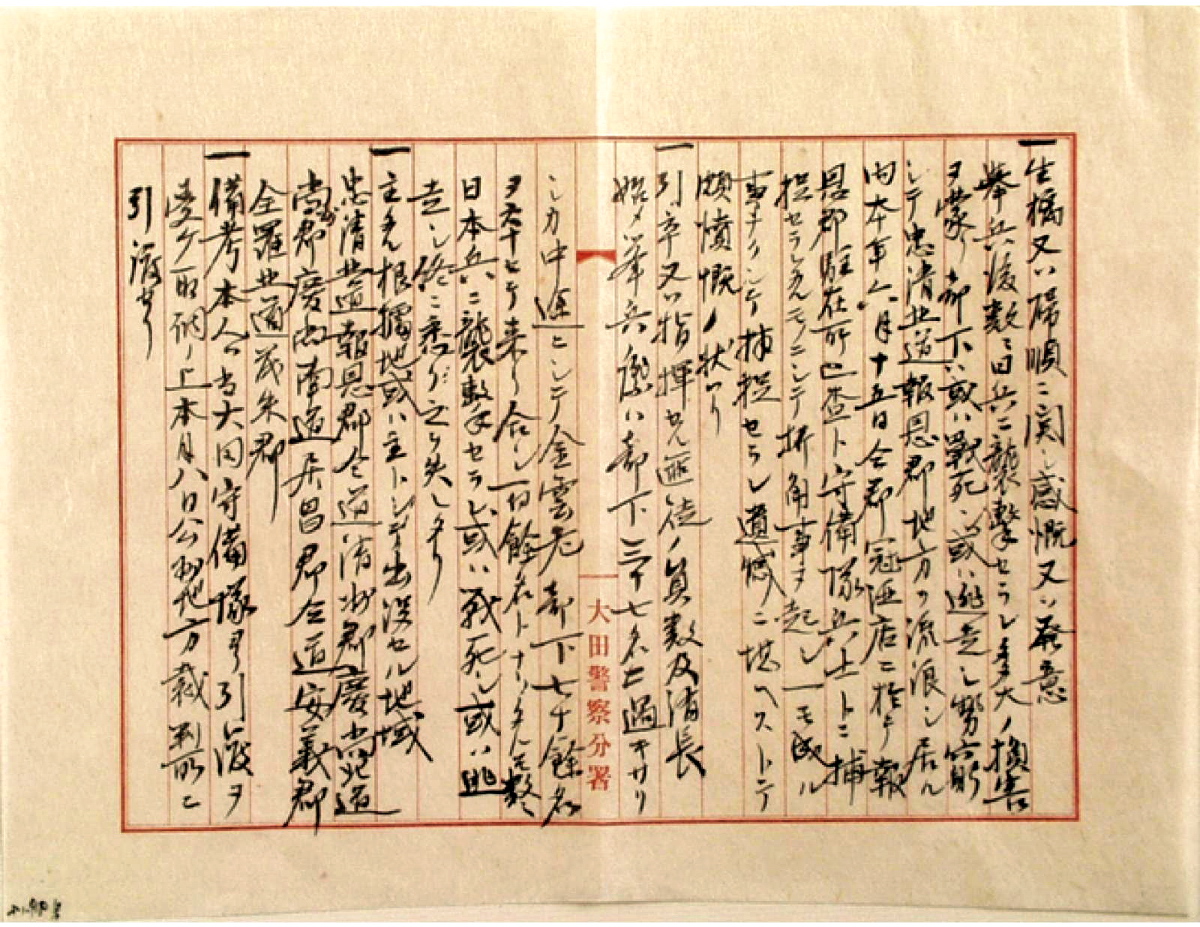 一生擒又ハ帰順ニ関シ感慨又ハ発意
挙兵後数々日兵ニ襲撃セラレ多大ノ損害
ヲ蒙リ部下ハ或ハ戦死シ或ハ逃走シ勢窮
シテ忠清北道報恩郡地方ヲ流浪シ居ル
内本年八月十五日仝郡 酒店ニ於テ報
恩郡駐在所巡査ト守備隊兵 トニ捕
捉セラレタルモノニシテ折角事ヲ起シ一モ成ル
事ナクシテ捕捉セラレ遺憾ニ堪ヘストテ
頗憤慨ノ状アリ
一引卒又ハ指揮セル匪徒ノ員数及消長
始メ挙兵ノ際ハ部下三十七名ニ過キサリ
シカ中途ニシテ金雲老部下七十餘名
ヲ 来リ合シ一百餘名トナリタルモ数々
日本兵ニ襲撃セラレ或ハ戦死シ或ハ逃
走シ終ニ悉ク之ヲ失シタリ
一主タル根拠地或ハ主トシテ出没セル地域
忠清北道報恩郡仝道清州郡慶尚北道
尚州郡慶尚南道居昌郡仝道安義郡
全羅北道茂朱郡
一備考本人ハ当大田守備隊ヨリ引渡ヲ
受ケ取調ノ上本月八日公州地方裁判所ニ
引渡セリ
大田警察分署